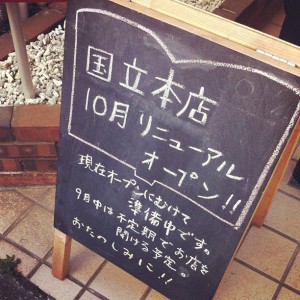 国立本店
10月リニューアル
オープン!!
現在オープンにむけて
準備中です。
9月中は不定期でお店を
開ける予定。
おたのしみに!!